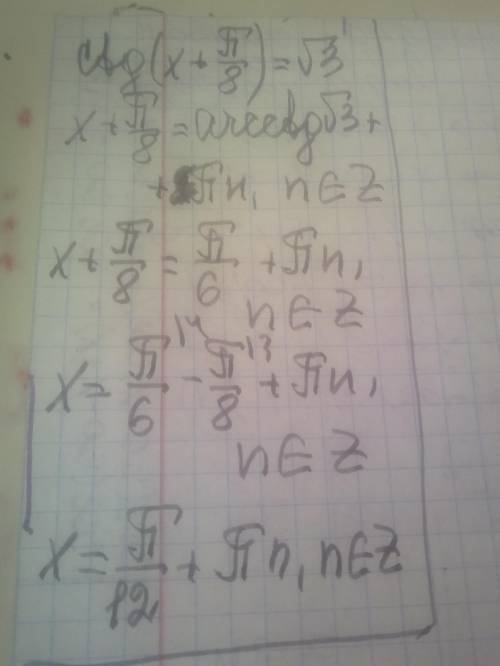 ctg(x + π/8) = √3
x + π/8 = arcctg√3 +
+ πn, n ∈ Z
x + π/8 = π/6 + πn,
n ∈ Z
x = π/6 \4 - π/8 \3 + πn,
n ∈ Z
x = π/12 + πn, n ∈ Z